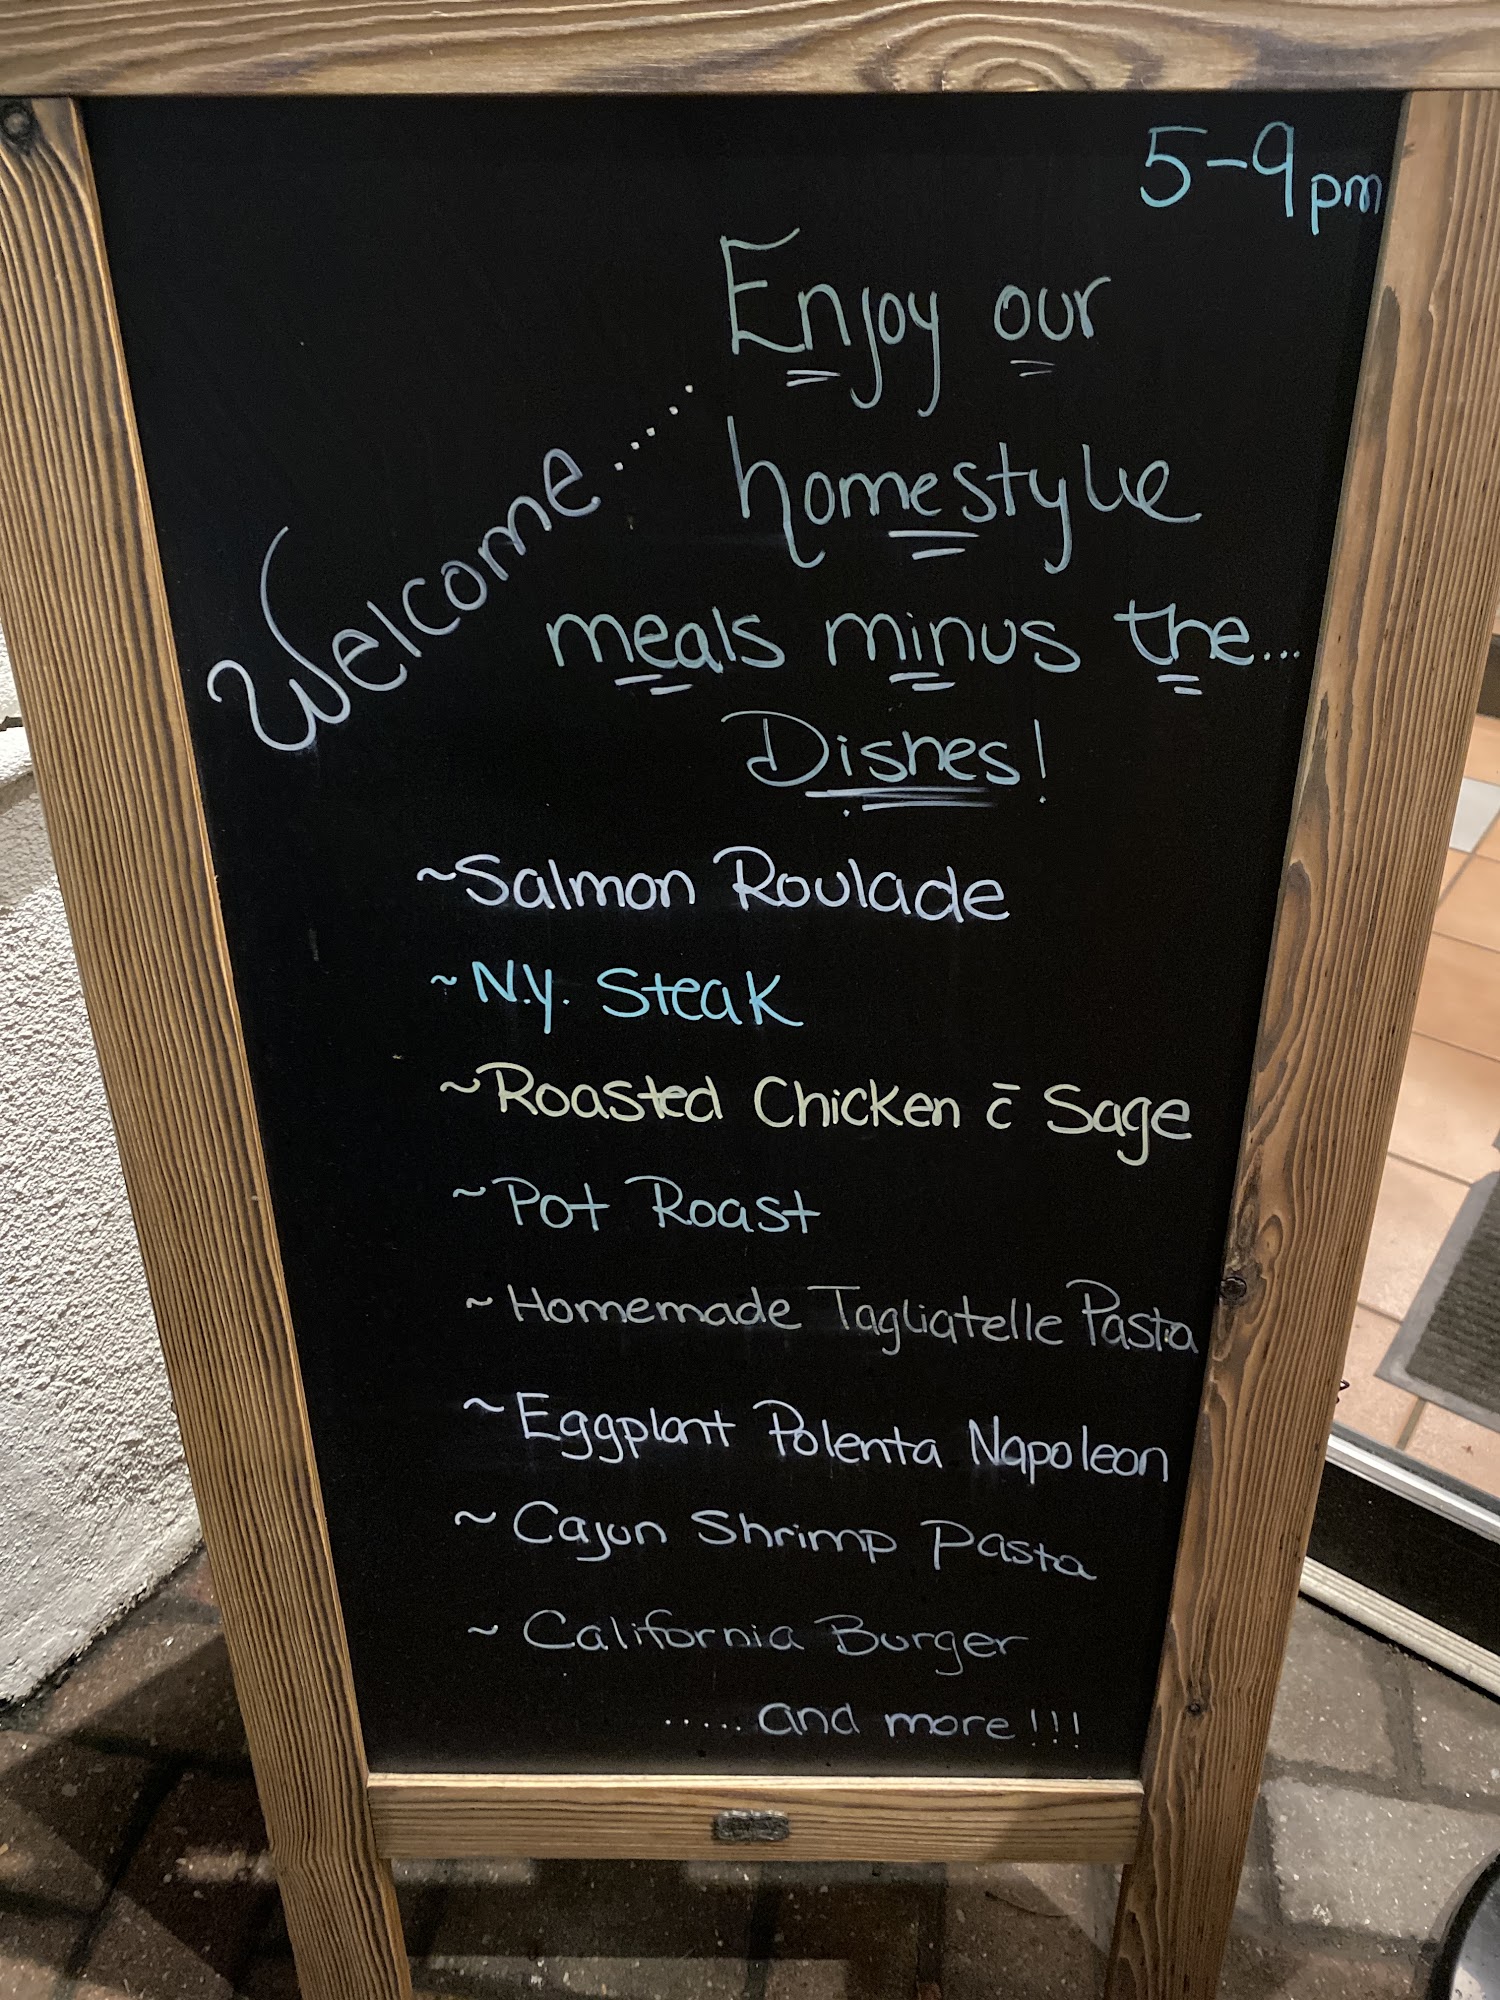 5-9pm
Welcome.....
Enjoy our
homestyle
meals minus the...
Dishes!
~Salmon Roulade
~N.Y. Steak
~Roasted Chicken c̄ Sage
~Pot Roast
~Homemade Tagliatelle Pasta
~Eggplant Polenta Napoleon
~Cajun Shrimp Pasta
~California Burger
.....and more!!!